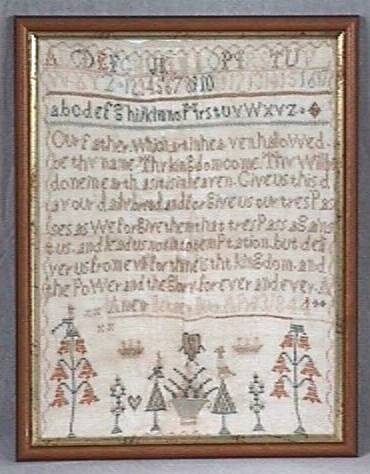 A C D E F
Z 1 2 3 4 5 6 7 8 9 10
a b c d e f g h i k l m n o P r s t u v W x y z
Our father. Which art in heaven hallowed.
be thy name Thy kingdom come. Thy Will be
done in earth as it is in heaven. Give us this d
ay our daily bread and forGive us our tres Pas
ses as We forGive them that tres Pass aGains
t us. and lead us not into temPtation. but deli
ver us from evil for thine is the kingdom. and
the PoWer and the Glory. for ever and ever. A
Men